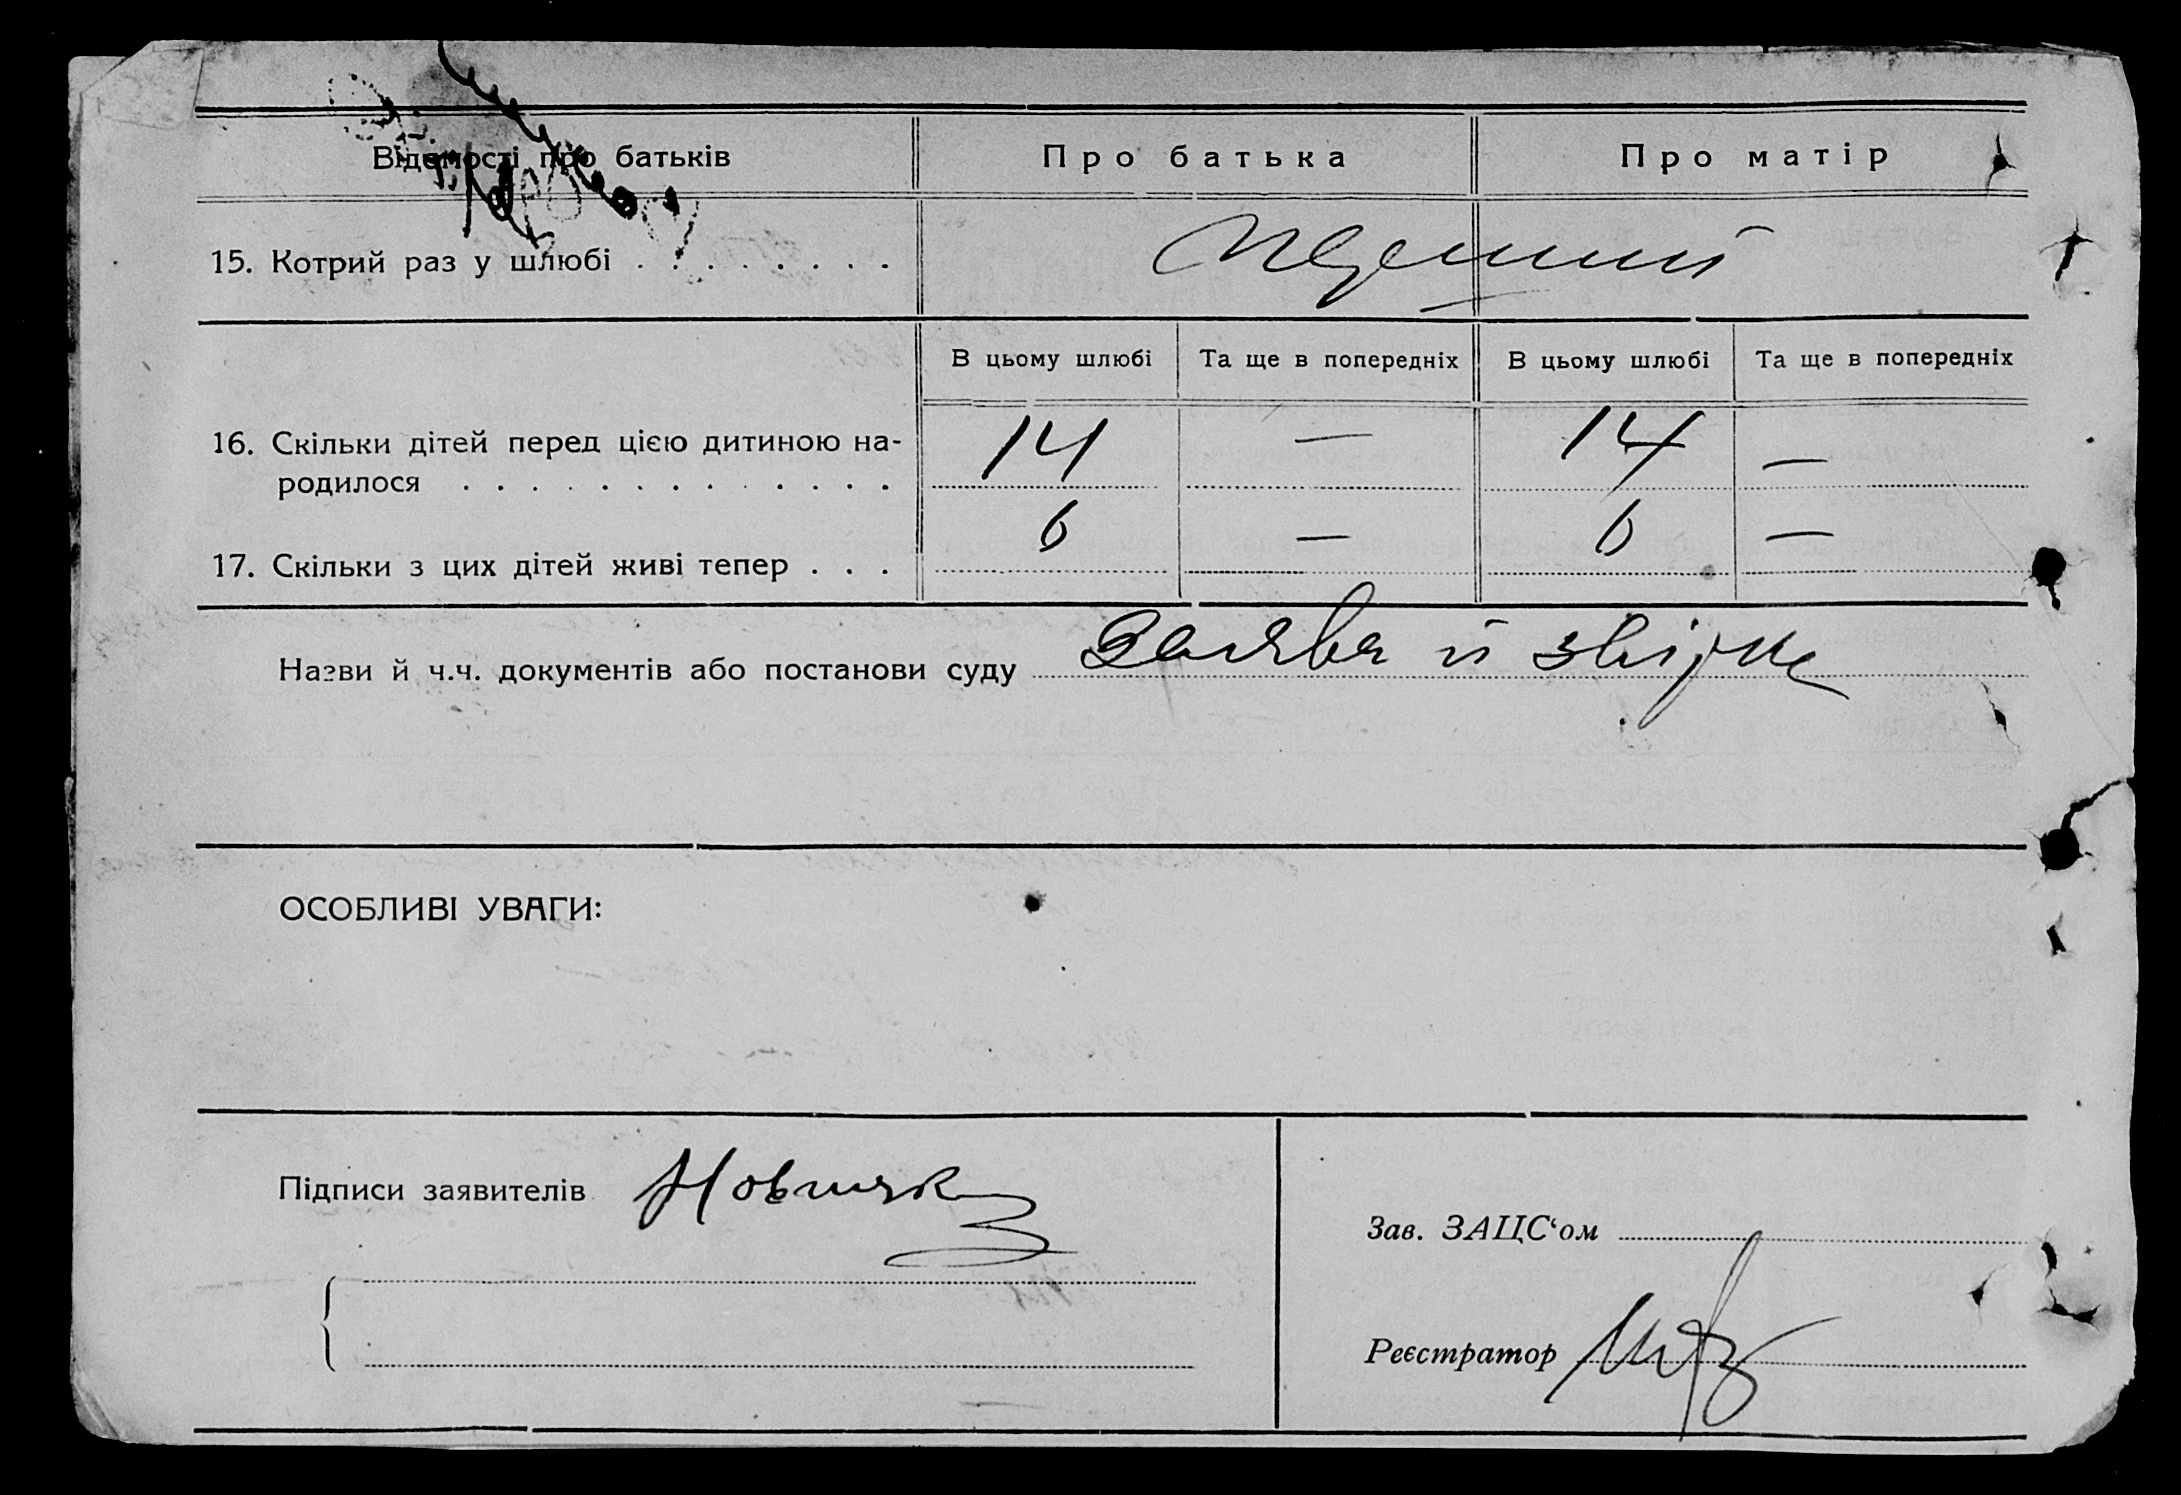 Відомості про батьків
Про батька
Про матір
15. Котрий раз у шлюбі . . . . . . . .
В цьому шлюбі
Та ще в попередніх
В цьому шлюбі
Та ще в попередніх
16. Скільки дітей перед цією дитиною на-
родилося . . . . . . . . . . . . .
14 — 14 —
17. Скільки з цих дітей живі тепер . . .
6 — 6 —
Назви й ч.ч. документів або постанови суду Заява й
ОСОБЛИВІ УВАГИ:
Підписи заявителів
Зав. ЗАЦС‘ом
Реєстратор